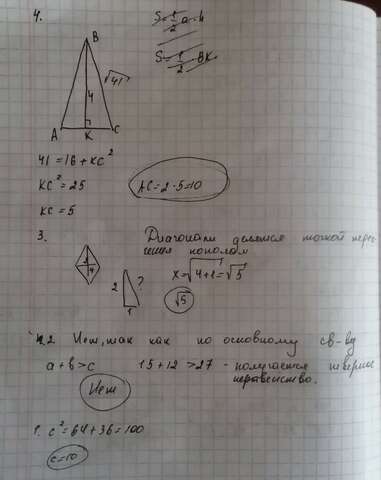 4.
S = 1/2 a·h
S = 1/2 · BK
B
√41
4
A
K
C
41 = 16 + KC²
KC² = 25
AC = 2·5 = 10
KC = 5
3.
Диагонали делятся точкой пересечения пополам
4
2
?
1
x = √4+1 = √5
√5
N2 Нет, так как по основному св-ву
a + b > c
15 + 12 > 27 - получается неверное
неравенство.
Нет
1. c² = 64 + 36 = 100
c = 10